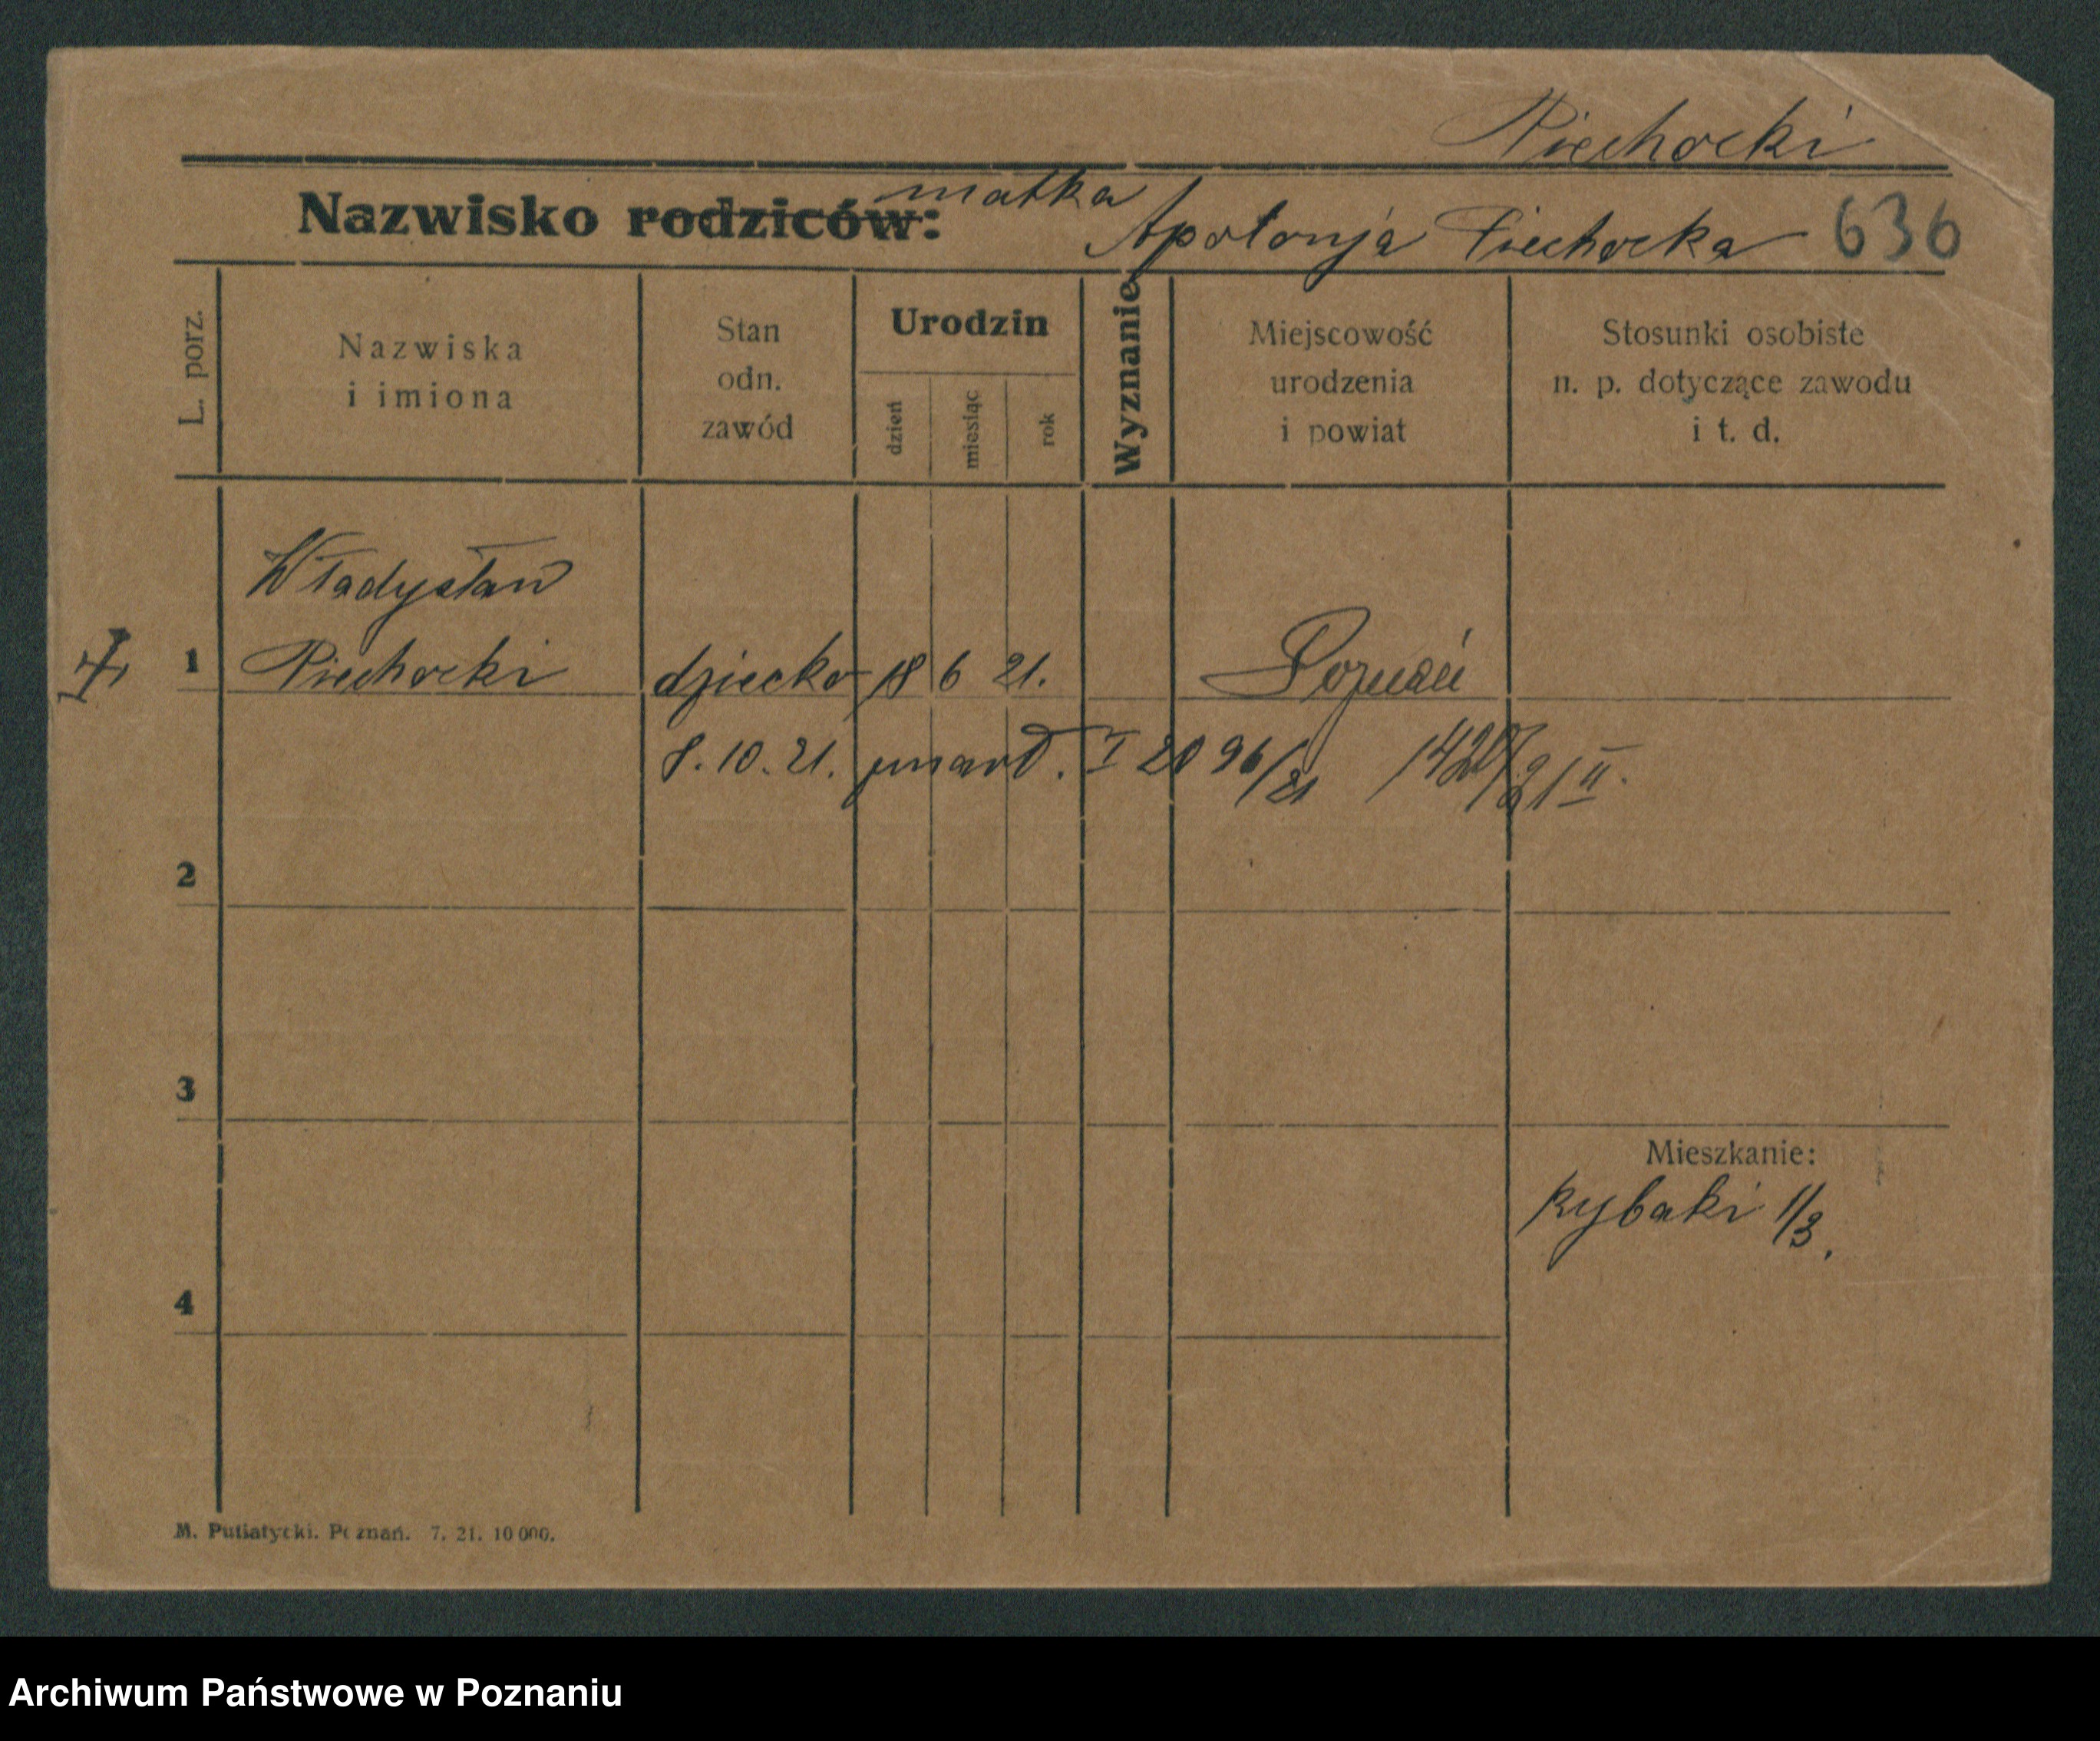 Piechocki
Nazwisko rodziców: matka Apolonja Piechocka 636
L. porz.
Nazwiska
i imiona
Stan
odn.
zawód
Urodzin
dzień
miesiąc
rok
Wyznanie
Miejscowość
urodzenia
i powiat
Stosunki osobiste
n. p. dotyczące zawodu
i t. d.
Władysław
1 Piechocki dziecko 18 6 21. Poznań
8. 10. 21. zmarł. I 2096/21 1420/21 II.
2
3
Mieszkanie:
Rybaki 1/3.
4
M. Putiatycki. Poznań. 7. 21. 10 000.
Archiwum Państwowe w Poznaniu